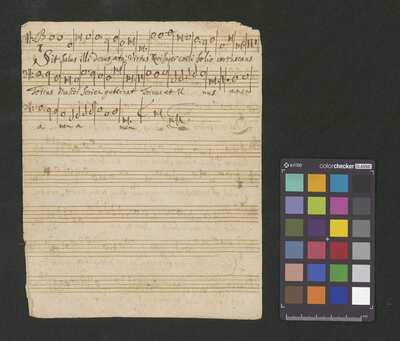 Sit Salus illi Decus atq Virtus Qui super coeli solio coruscans
Totius Mundi Seriem gubernat Trinus et U nus amen
a men a men
xrite colorchecker CLASSIC